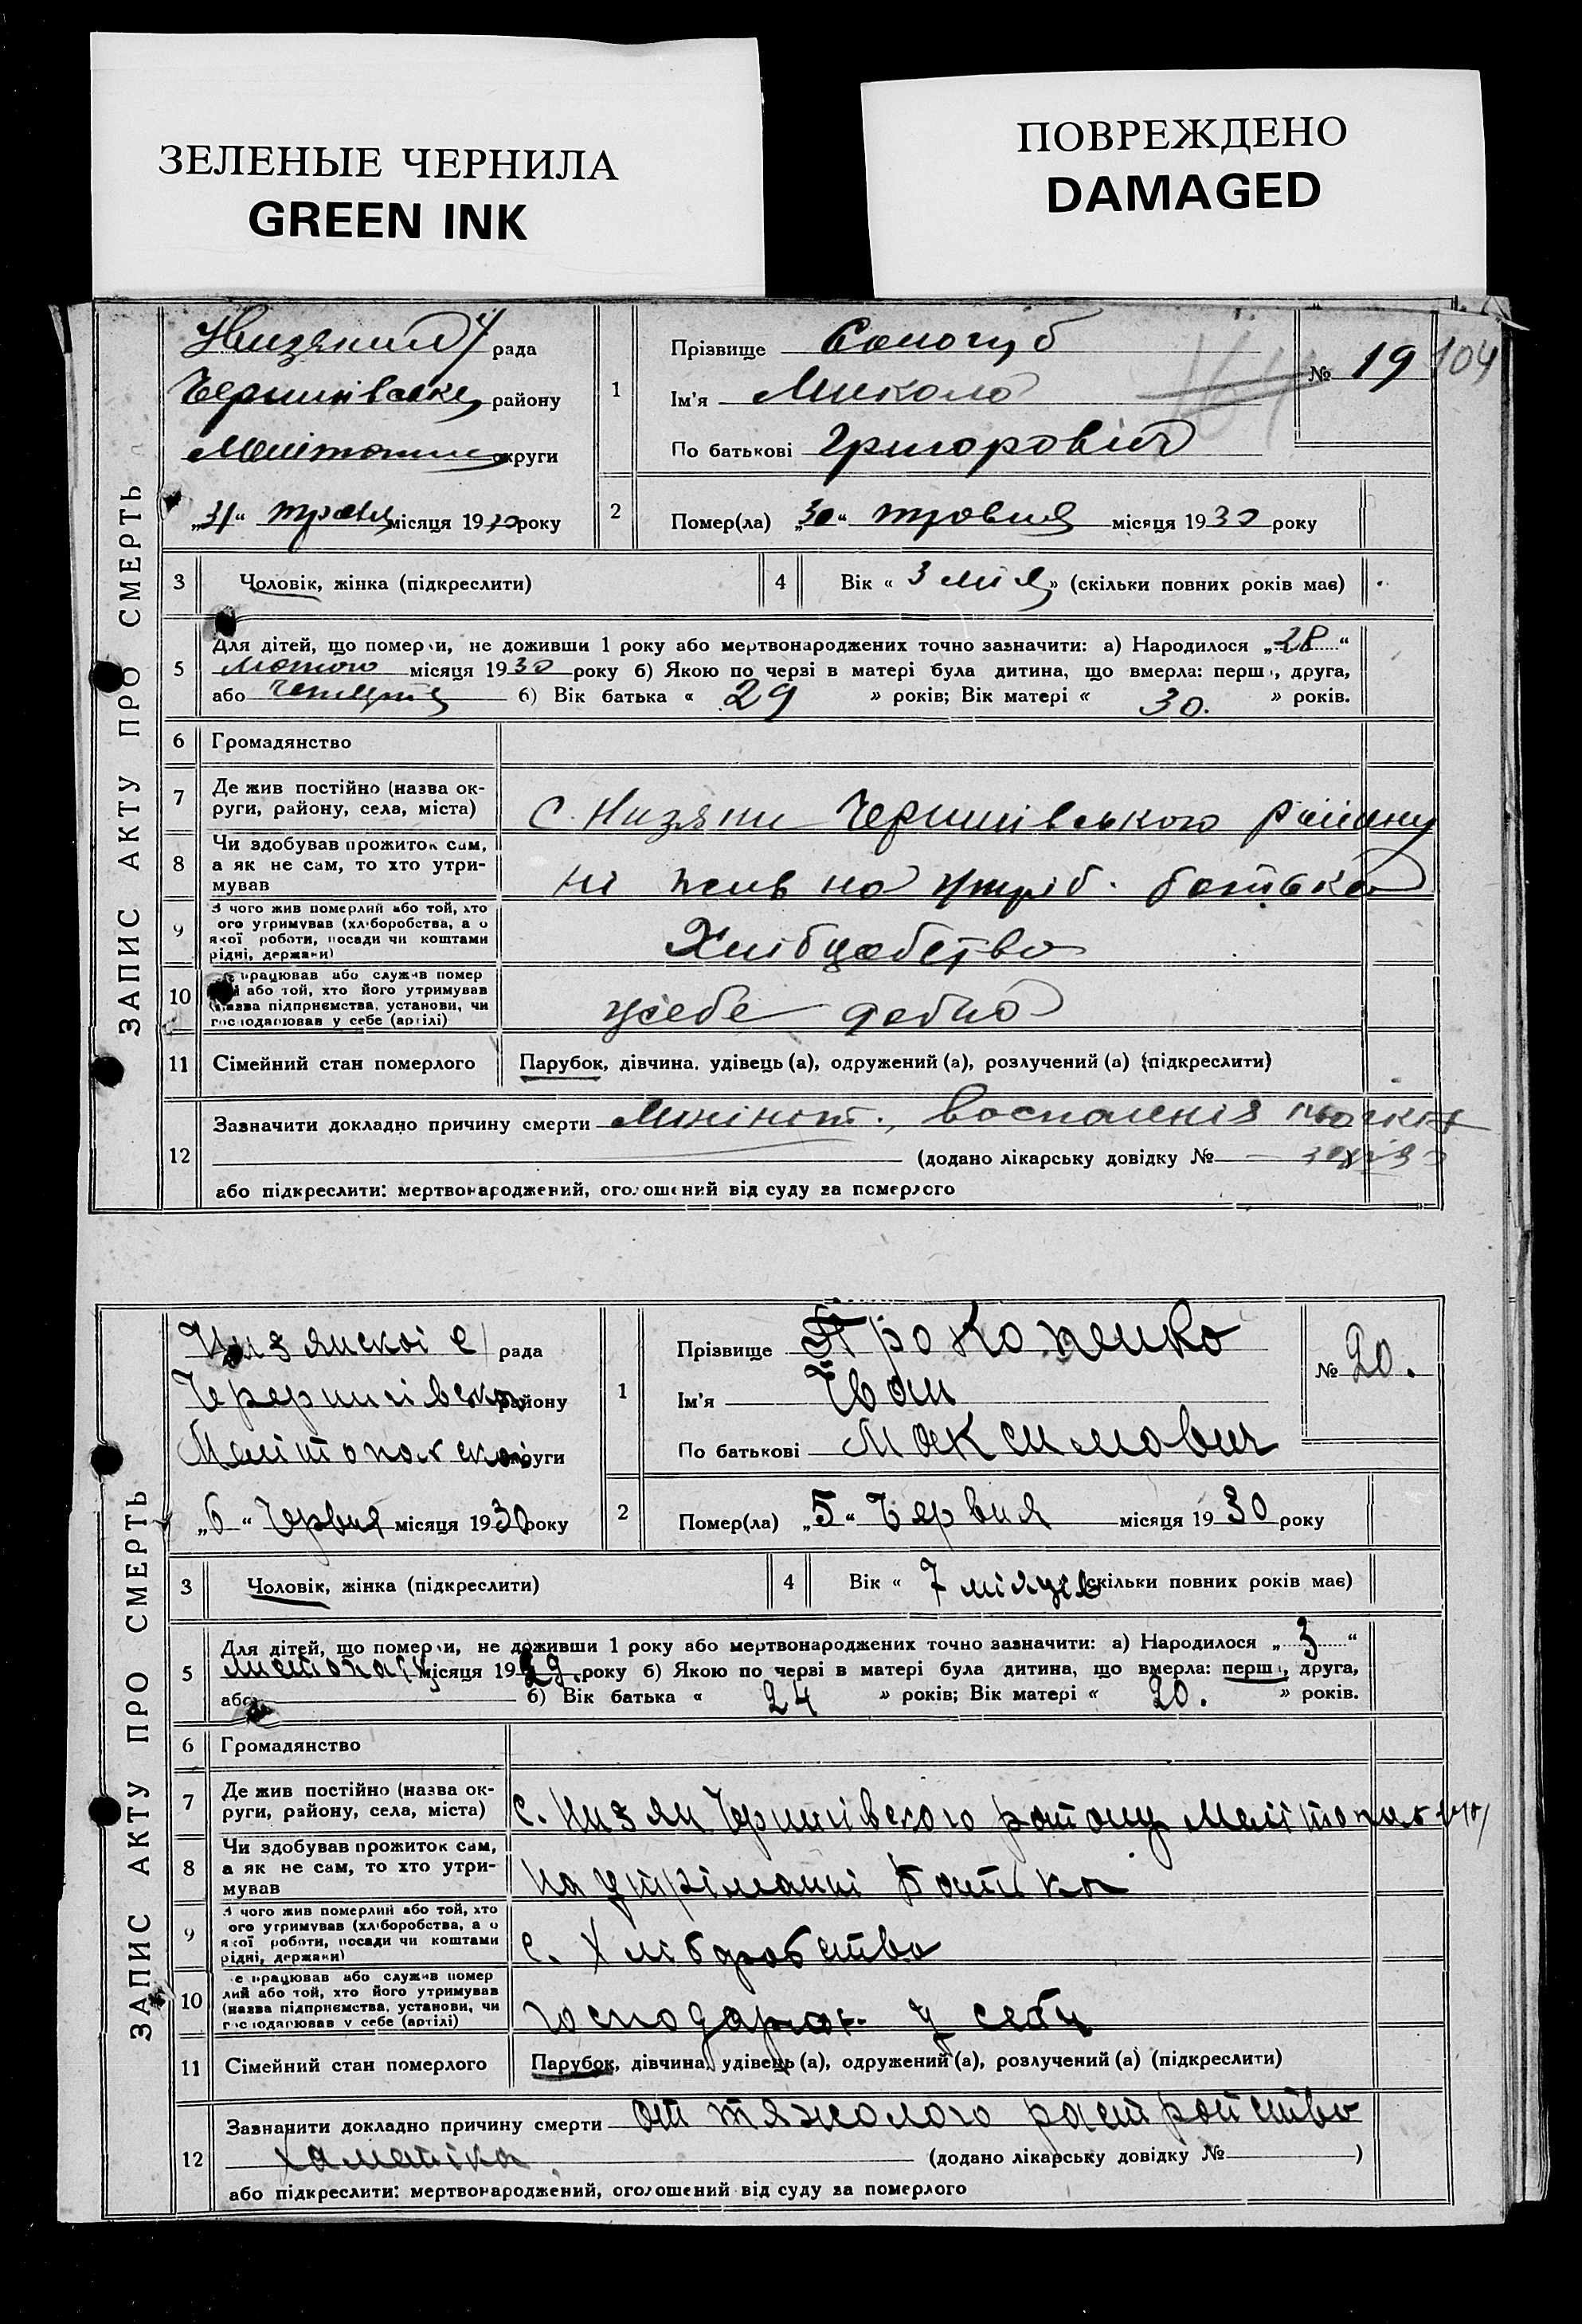 ЗЕЛЕНЫЕ ЧЕРНИЛА
GREEN INK
ПОВРЕЖДЕНО
DAMAGED
ЗАПИС АКТУ ПРО СМЕРТЬ
рада
району
округи
„31“ травня місяця 1930 року
1
Прізвище Сологуб
Ім'я Микола
По батькові Григорович
№ 19
104
2
Помер(ла) „30“ травня місяця 1930 року
3
Чоловік, жінка (підкреслити)
4
Вік « 3 » (скільки повних років має)
5
Для дітей, що померли, не доживши 1 року або мертвонароджених точно зазначити: а) Народилося „28“
лютого місяця 1930 року б) Якою по черзі в матері була дитина, що вмерла: перша, друга,
або б) Вік батька « 29 » років; Вік матері « 30. » років.
6
Громадянство
7
Де жив постійно (назва ок-
руги, району, села, міста)
С. Низяни Чернигівського району
8
Чи здобував прожиток сам,
а як не сам, то хто утри-
мував
ні жив на утріб. батька
9
З чого жив померлий або той, хто
його утримував (хліборобства, а о
якої роботи, посади чи коштами
рідні, держави)
10
Де працював або служив помер
лий або той, хто його утримував
(назва підприємства, установи, чи
господарював у себе (артілі)
усебе
11
Сімейний стан померлого
Парубок, дівчина, удівець (а), одружений (а), розлучений (а) (підкреслити)
12
Зазначити докладно причину смерти
(додано лікарську довідку №
або підкреслити: мертвонароджений, оголошений від суду за померлого
ЗАПИС АКТУ ПРО СМЕРТЬ
Низянскоі с/ рада
району
округи
„6“ Червня місяця 1930 року
1
Прізвище Прокопенко
Ім'я Іван
По батькові Максимович
№ 20.
2
Помер(ла) „5“ Червня місяця 1930 року
3
Чоловік, жінка (підкреслити)
4
Вік « 7 місяців (скільки повних років має)
5
Для дітей, що померли, не доживши 1 року або мертвонароджених точно зазначити: а) Народилося „3“
місяця 1929 року б) Якою по черзі в матері була дитина, що вмерла: перша, друга,
або б) Вік батька « 24 » років; Вік матері « 20. » років.
6
Громадянство
7
Де жив постійно (назва ок-
руги, району, села, міста)
с. Низян Чернигівского району
8
Чи здобував прожиток сам,
а як не сам, то хто утри-
мував
на утріманні батька
9
З чого жив померлий або той, хто
його утримував (хліборобства, а о
якої роботи, посади чи коштами
рідні, держави)
с. Хліборобство
10
Де працював або служив помер
лий або той, хто його утримував
(назва підприємства, установи, чи
господарював у себе (артілі)
у себе
11
Сімейний стан померлого
Парубок, дівчина, удівець (а), одружений (а), розлучений (а) (підкреслити)
12
Зазначити докладно причину смерти от тяжолого растройства
(додано лікарську довідку № )
або підкреслити: мертвонароджений, оголошений від суду за померлого